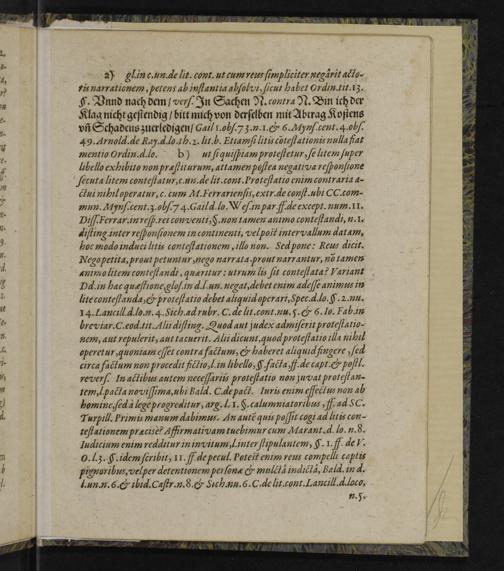 2) gl. in c. un. de lit. cont. ut cum reus simpliciter negârit acto-
ris narrationem, petens ab instantia absolvi, sicut habet Ordin. tit. 13.
§. Vnnd nach dem / vers. In Sachen N. contra N. Bin ich der
Klag nicht gestendig / bitt mich von derselben mit Abtrag Kostens
vñ Schadens zuerledigen / Gail 1. obs. 73. n. 1. & 6. Myns. cent. 4. obs.
49. Arnold. de Ray. d. lo. th. 2. lit. b. Etiamsi litis cõtestationis nulla fiat
mentio Ordin. d. lo. b) ut si quispiam protestetur, se litem super
libello exhibito non præstiturum, attamen postea negativa responsione
secuta litem contestatur, c. un. de lit. cont. Protestatio enim contraria a-
ctui nihil operatur, c. cum M. Ferrariensis, extr. de const. ubi CC. com-
mun. Myns. cent. 3. obs. 74. Gail. d. lo. Wes. in par. ff. de except. num. 11.
Diss. Ferrar. in resp. rei conventi, §. non tamen animo contestandi, n. 1.
disting. inter responsionem in continenti, vel post intervallum datam,
hoc modo induci litis contestationem, illo non. Sed pone: Reus dicit.
Nego petita, prout petuntur, nego narrata prout narrantur, nõ tamen
animo litem contestandi, quæritur: utrum lis sit contestata? Variant
Dd. in hac quæstione, glos. in d. l. un. negat, debet enim adesse animus in
lite contestanda, & protestatio debet aliquid operari, Spec. d. lo. §. 2. nu.
14. Lancill. d. lo. n. 4. Sich. ad rubr. C. de lit. cont. nu. 5. & 6. Io. Fab. in
breviar. C. eod. tit. Alii disting. Quod aut judex admiserit protestatio-
nem, aut repulerit, aut tacuerit. Alii dicunt, quod protestatio illa nihil
operetur, quoniam esset contra factum, & haberet aliquid fingere, sed
circa factum non procedit fictio, l. in bello, §. facta, ff. de capt. & postl.
revers. In actibus autem necessariis protestatio non juvat protestan-
tem, l. pacta novissima, ubi Bald. C. de pact. Iuris enim effectus non ab
homine, sed à lege progreditur, arg. l. 1. §. calumniatoribus, ff. ad SC.
Turpill. Primis manum dabimus. An autẽ quis possit cogi ad litis con-
testationem præcisè? Affirmativam tuebimur cum Marant. d. lo. n. 8.
Iudicium enim redditur in invitum, l. inter stipulantem, §. 1. ff. de V.
O. l. 3. §. idem scribit, 11. ff. de pecul. Potest enim reus compelli captis
pignoribus, vel per detentionem personæ & mulctâ indictâ, Bald. in d.
l. un. n. 6. & ibid. Castr. n. 8. & Sich. nu. 6. C. de lit. cont. Lancill. d. loco,
n. 5.